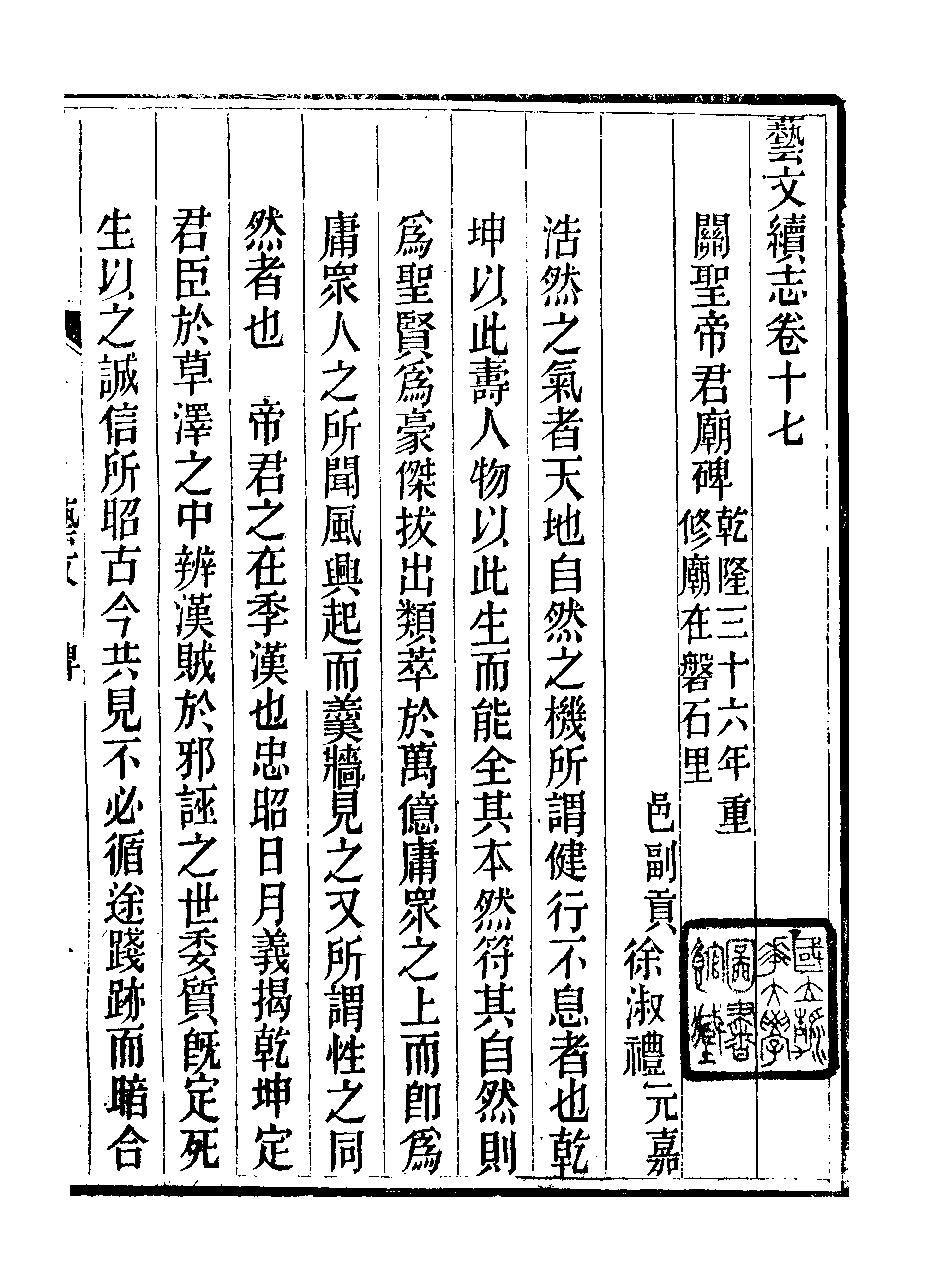 藝文續志卷十七
關聖帝君廟碑
乾隆三十六年重
修廟在磐石里
邑副貢徐淑禮元嘉
浩然之氣者天地自然之機所謂健行不息者也乾
坤以此壽人物以此生而能全其本然符其自然則
爲聖賢爲豪傑拔出類萃於萬億庸衆之上而卽爲
庸衆人之所聞風興起而羹牆見之又所謂性之同
然者也　帝君之在季漢也忠昭日月義揭乾坤定
君臣於草澤之中辨漢賊於邪誣之世委質旣定死
生以之誠信所昭古今共見不必循途踐跡而暗合
藝文　碑
國立
大學
圖書
館藏